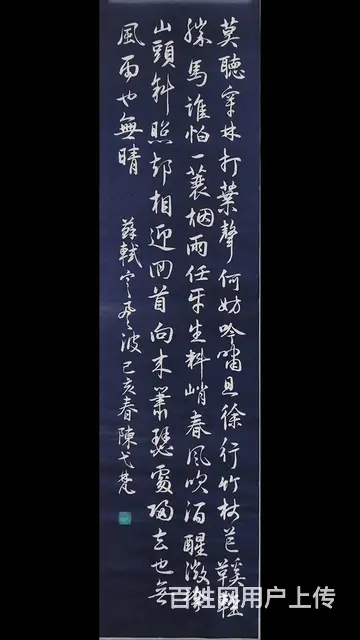 莫聽穿林打葉聲何妨吟嘯且徐行竹杖芒鞵輕
勝馬誰怕一蓑烟雨任平生料峭春風吹酒醒微冷
山頭斜照却相迎回首向來蕭瑟處歸去也無
風雨也無晴 蘇軾定風波己亥春陳弋梵
百姓网用户上传